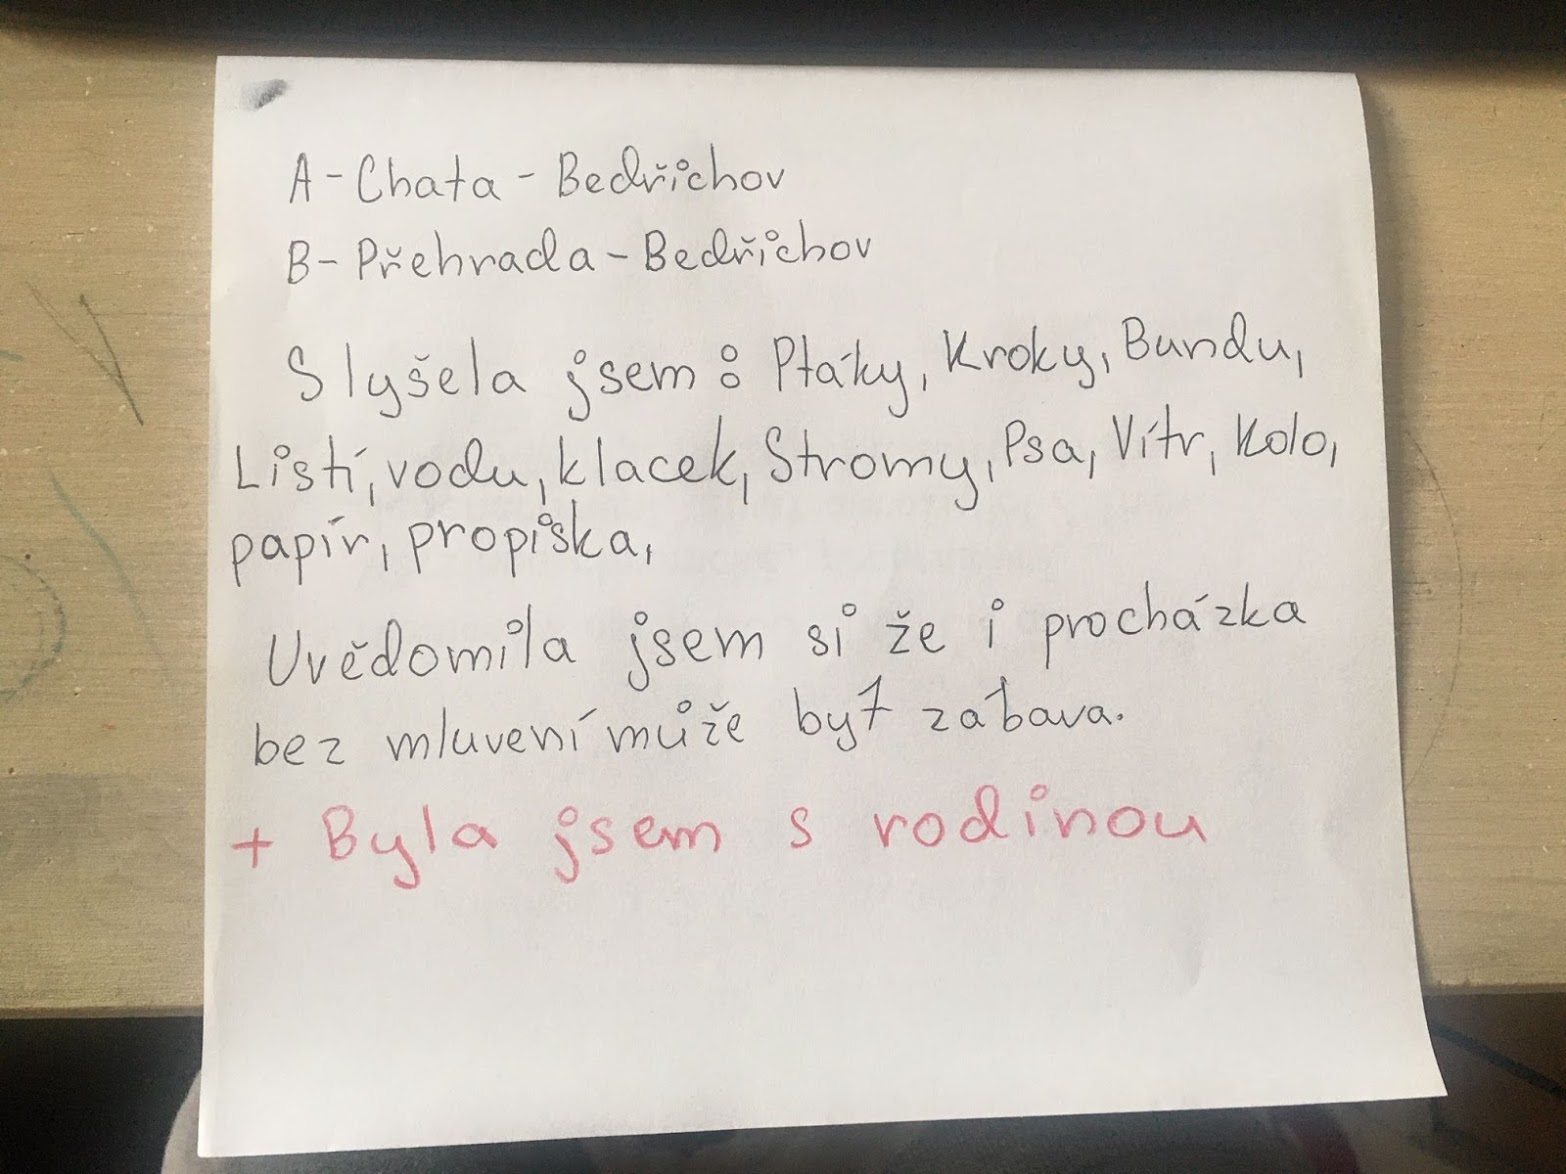 A-Chata - Bedřichov
B- Přehrada - Bedřichov
Slyšela jsem : Ptáky, Kroky, Bundu,
Listí, vodu, klacek, Stromy, Psa, Vítr, Kolo,
papír, propiska,
Uvědomila jsem si že i procházka
bez mluvení může být zábava.
+ Byla jsem s rodinou